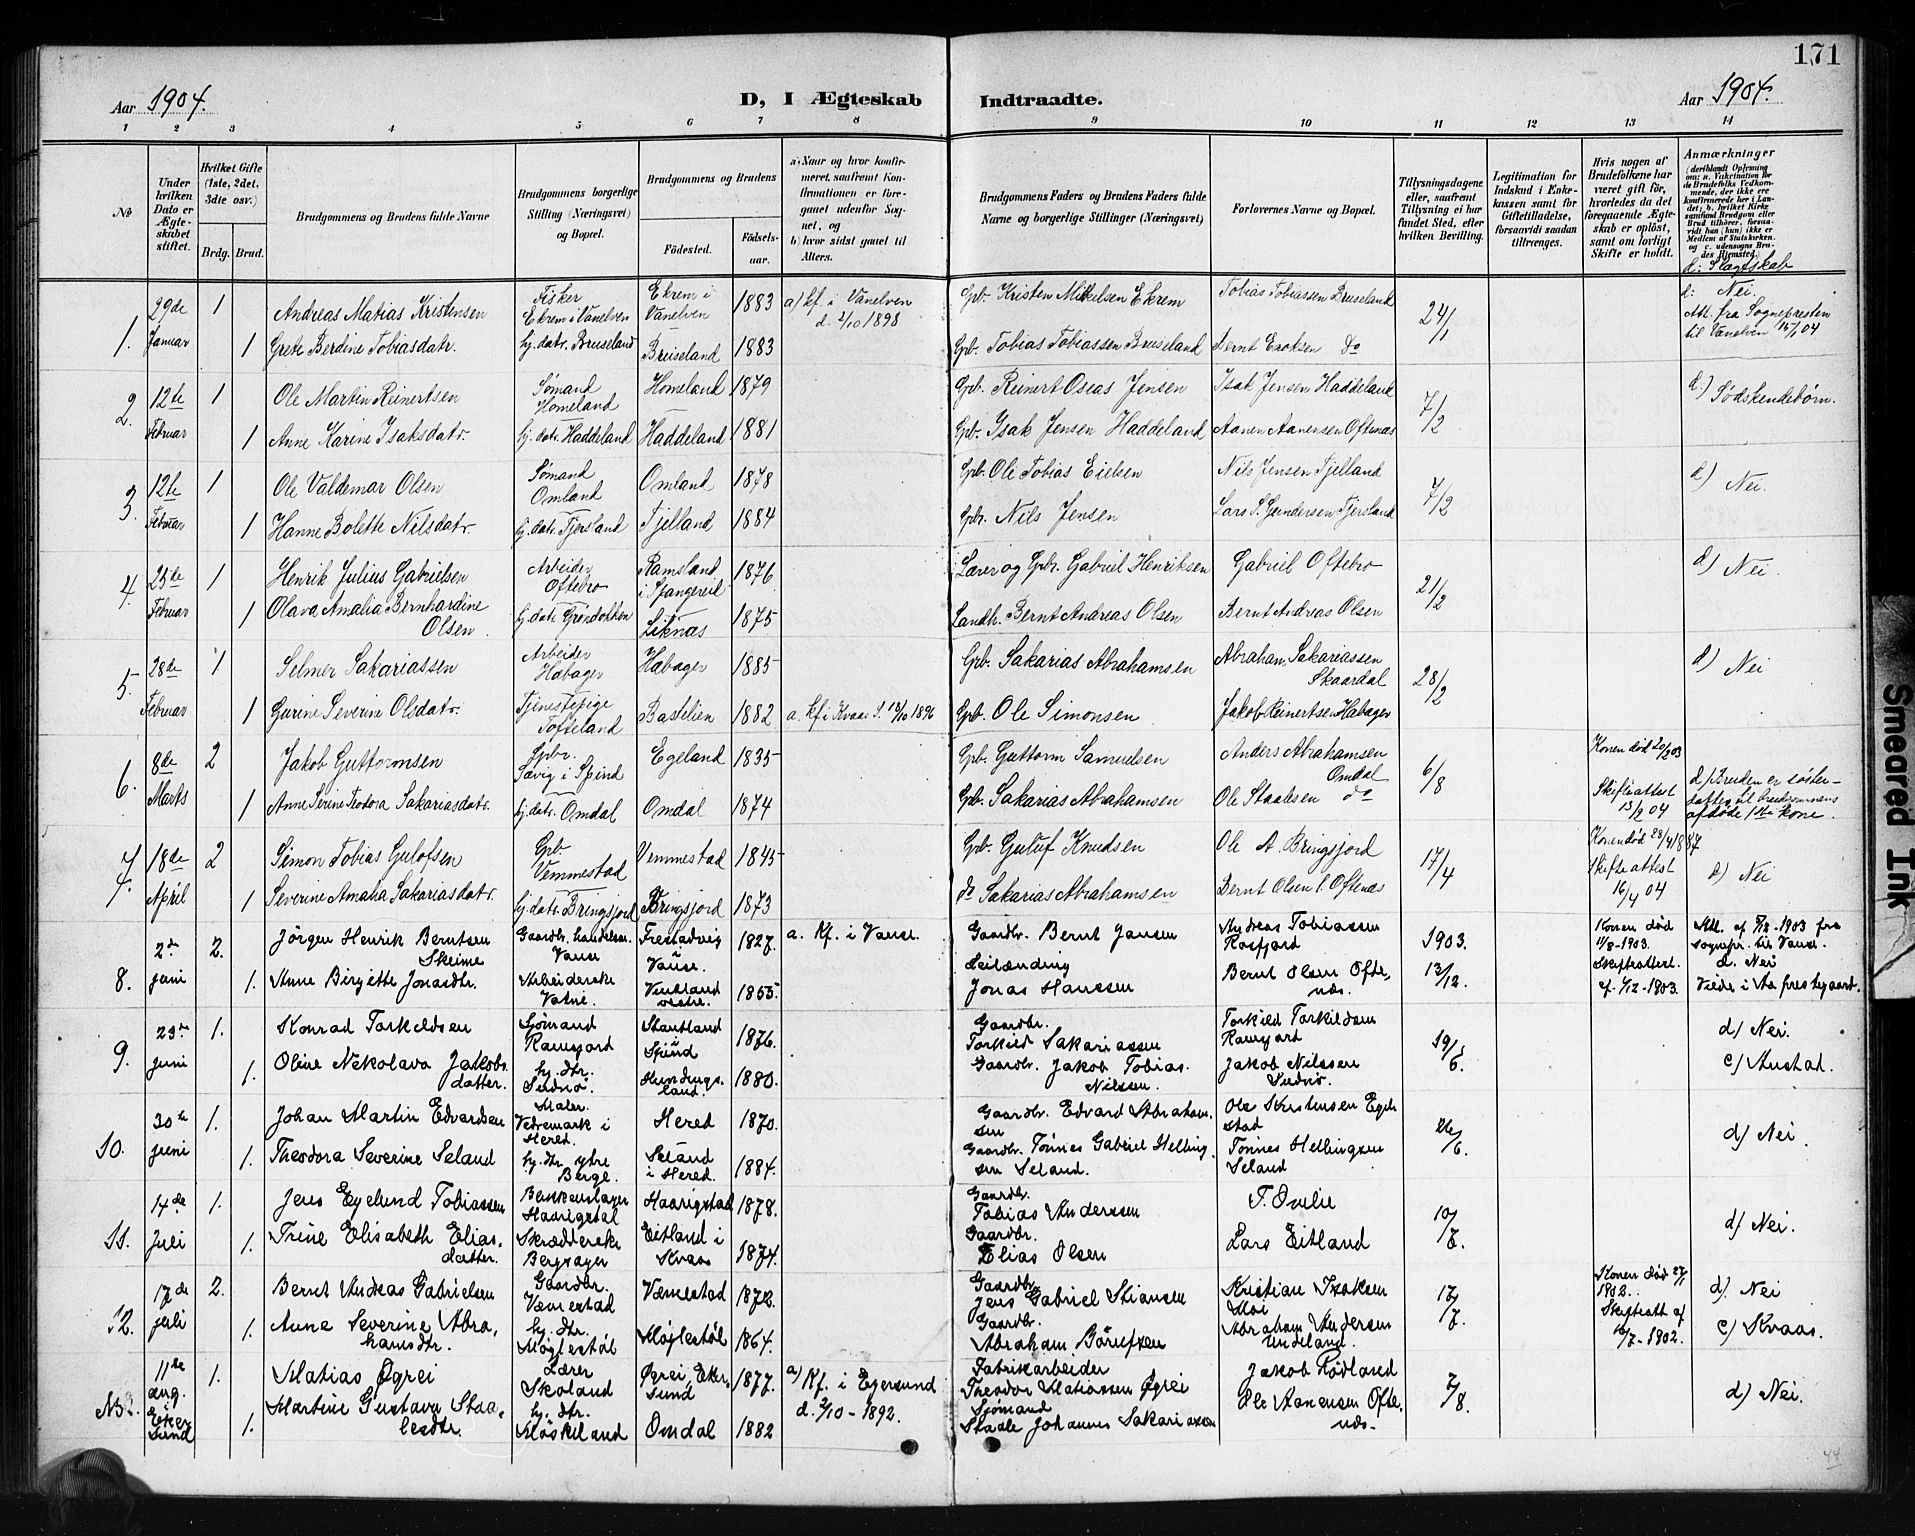 171
Aar 1904.
D, I Ægteskab Indtraadte.
Aar 1904.
1 2 3 4 5 6 7 8 9 10 11 12 13 14
No
Under hvilken Dato er Ægteskabet stiftet.
Hvilket Gifte (1ste, 2det, 3die osv.)
Brdg. Brud.
Brudgommens og Brudens fulde Navne
Brudgommens borgerlige Stilling (Næringsvei) og Bopæl.
Brudgommens og Brudens
Fødested. Fødselsaar.
a) Naar og hvor konfirmeret, saafremt Konfirmationen er foregaaet udenfor Sognet, og
b) hvor sidst gaaet til Alters.
Brudgommens Faders og Brudens Faders fulde Navne og borgerlige Stillinger (Næringsvei)
Forlovernes Navne og Bopæl.
Tillysningsdagene eller, saafremt Tillysning ei har fundet Sted, efter hvilken Bevilling.
Legitimation for Indskud i Enkekassen samt for Giftetilladelse, forsaavidt saadan tiltrænges.
Hvis nogen af Brudefolkene har været gift før, hvorledes da det foregaaende Ægteskab er opløst, samt om lovligt Skifte er holdt.
Anmærkninger
d: Slægtskab
1. 29de Januar 1 Andreas Matias Kristensen Fisker Ekrem i Vanelven Ekrem i Vanelven 1883 a) kf. i Vanelven d. 2/10 1898 Gbr. Kristen Mikkelsen Ekrem Tobias Tobiassen Bruseland 24/1 d: Nei. Att. fra Sognepresten til Vanelven 15/1 04
1 Grete Berdine Tobiasdatr. hj. datr. Bruseland Bruseland 1883 Gbr. Tobias Tobiassen Bruseland Bernt Enoksen Do
2. 12te Februar 1 Ole Martin Reinertsen Sømand Homeland Homeland 1879 Gbr. Reinert Oseas Jensen Isak Jensen Haddeland 7/2 d.) Sødskendebørn.
1 Anne Karine Isaksdatr. hj. datr. Haddeland Haddeland 1881 Gbr. Isak Jensen Haddeland Aanen Aanensen Oftenæs
3. 12te Februar 1 Ole Valdemar Olsen Sømand Omland Omland 1878 Gbr. Ole Tobias Eielsen Nils Jensen Fjelland 7/2 d) Nei.
1 Hanne Bolette Nilsdatr. hj. datr. Fjersland Fjelland 1884 Gbr. Nils Jensen Lars S. Gundersen Fjersland
4. 25de Februar 1 Henrik Julius Gabrielsen Arbeider Oftebro Ramsland i Spangereid 1876 Lærer og Gbr. Gabriel Henriksen Gabriel Oftebro 21/2 d) Nei.
1 Olava Amalia Bernhardine Olsen hj. datr. Grøndokken Liknæs 1875 Landh. Bernt Andreas Olsen Bernt Andreas Olsen
5. 28de Februar 1 Selmer Sakariassen Arbeider Habager Habager 1885 Gbr. Sakarias Abrahamsen Abraham Sakariassen Skaardal 28/2 d) Nei
1 Gurine Severine Olsdatr. Tjenestepige Tofteland Bastelien 1882 a. kf i Kvaas S. 13/10 1896 Gbr. Ole Simonsen Jakob Reinertsen Habager
6. 8de Marts 2 Jakob Guttormsen Gbr. Jævig i Spind Egeland 1835 Gbr. Guttorm Samuelsen Anders Abrahamsen Omdal 6/3 Konen død 20/2 03 Skifteattest 13/2 04 d) Bruden er søsterdatter til brudgommens afdøde 1ste kone.
1 Anne Serine Teodora Sakariasdatr. hj. datr. Omdal Omdal 1874 Gbr. Sakarias Abrahamsen Ole Staalesen do
7. 18de April 2 Simon Tobias Gulofsen Gbr Vemmestad Vemmestad 1845 Gbr. Guluf Knudsen Ole A. Bringsjord 17/4 Konen død 28/4 1887 Skifteattest 16/4 04 d) Nei
1 Severine Amalia Sakariasdatr. hj. datr. Bringsjord Bringsjord 1873 do Sakarias Abrahamsen Bernt Olsen S. Oftenæs
8. 2den juni 2. Jörgen Henrik Berntsen Skeime Gaardbr. handelsm. Vanse Frestadvig Vanse. 1827. a. Kf. i Vanse. Gaardbr. Bernt Jansen Andreas Tobiassen Rosfjord 1903. 13/12. Konen död 11/8-1903. Skifteattest af 1/12-1903. Att. af 7/12-1903 fra sognepr. til Vanse. d. Nei
1. Anne Birgitte Jonasdtr. Arbeiderske Vatne. 1855 Leilænding Jonas Hanssen Bernt Olsen Oftenæs. Viede i Aa prestegaard.
9. 23de juni 1. Konrad Torkildsen Sjömand Ramsjord Stautland Spind 1876. Gaardbr. Torkild Sakariassen Torkild Torkildsen Ramsjord 19/6. d) Nei.
1. Oline Nikolava Jakobsdatter. hj. dtr. Sudnö. Hundingsland. 1880. Gaardbr. Jakob Tobias Nilssen. Jakob Nilssen Sudnö. c) Austad.
10. 30te juni 1. Johan Martin Edvardsen Maler. Vedremark i Hered. Hered 1870. Gaardbr. Edvard Abrahamsen Ole Kristensen Egelstad 26/6. d) Nei.
1. Theodora Severine Seland hj. dtr. ytre Berge. Seland i Hered. 1884. Gaardbr. Tönnes Gabriel Hellingsen Seland. Tönnes Hellingsen Seland
11. 14de Juli 1. Jens Eyelund Tobiassen Haarigstad Haarigstad 1878. Gaardbr. Tobias Anderssen T. Ovelie 10/7. d) Nei.
1. Trine Elisabeth Eliasdatter. Skrædderske Bergsager Eitland i Kvaas 1874. Gaardbr. Elias Olsen Lars Eitland
12. 17de juli 2. Bernt Andreas Gabrielsen Gaardbr. Væmestad Væmestad 1872. Gaardbr. Jens Gabriel Stiansen Kristian Isaksen Moi 17/7. Konen död 27/1 1902. Skifteatt af /7-1902. d) Nei
1. Anne Severine Abrahamsdtr. hj. dtr. Möglestöl Möglestöl 1864. Gaardbr. Abraham Börufsen Abraham Andersen Undeland. c) Kvaas.
11te aug. Ekersund 1. Matias Øgrei Lærer Skoland Øgrei, Ekersund 1877. a) Kf. i Egersund d. 2/10-1892. Fabrikarbeider Theodor Matiassen Øgrei Jakob Rödland 7/8. d) Nei.
1. Martine Gustava Staalesdtr. hj. dtr. Möskeland Omdal 1882 Sjömand Staale Johannes Sakariassen Ole Aanensen Oftenæs.
44
Smeared Ink